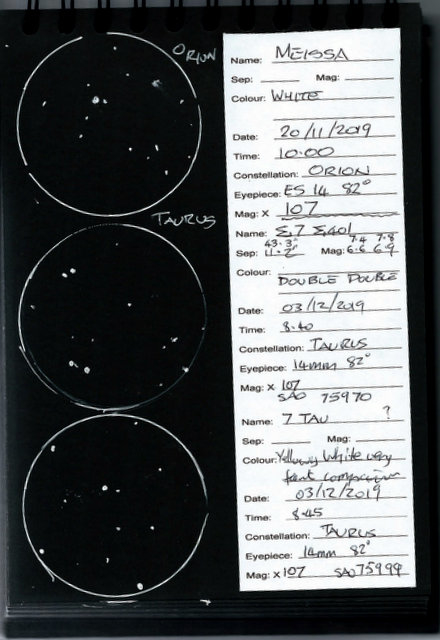 ORION
Name: MEISSA
Sep: Mag:
Colour: WHITE
Date: 20/11/2019
Time: 10.00
Constellation: ORION
Eyepiece: ES 14 82°
Mag: X 107
TAURUS
Name: Σ,7 Σ401
43.3" 7.4 7.8
Sep: 11.2" Mag: 6.6 6.9
Colour:
DOUBLE DOUBLE
Date: 03/12/2019
Time: 8.40
Constellation: TAURUS
Eyepiece: 14mm 82°
Mag: X 107
SAO 75970
Name: 7 TAU ?
Sep: Mag:
Colour: Yellowy White very
faint companion
Date: 03/12/2019
Time: 8.45
Constellation: TAURUS
Eyepiece: 14mm 82°
Mag: X 107 SAO 75999